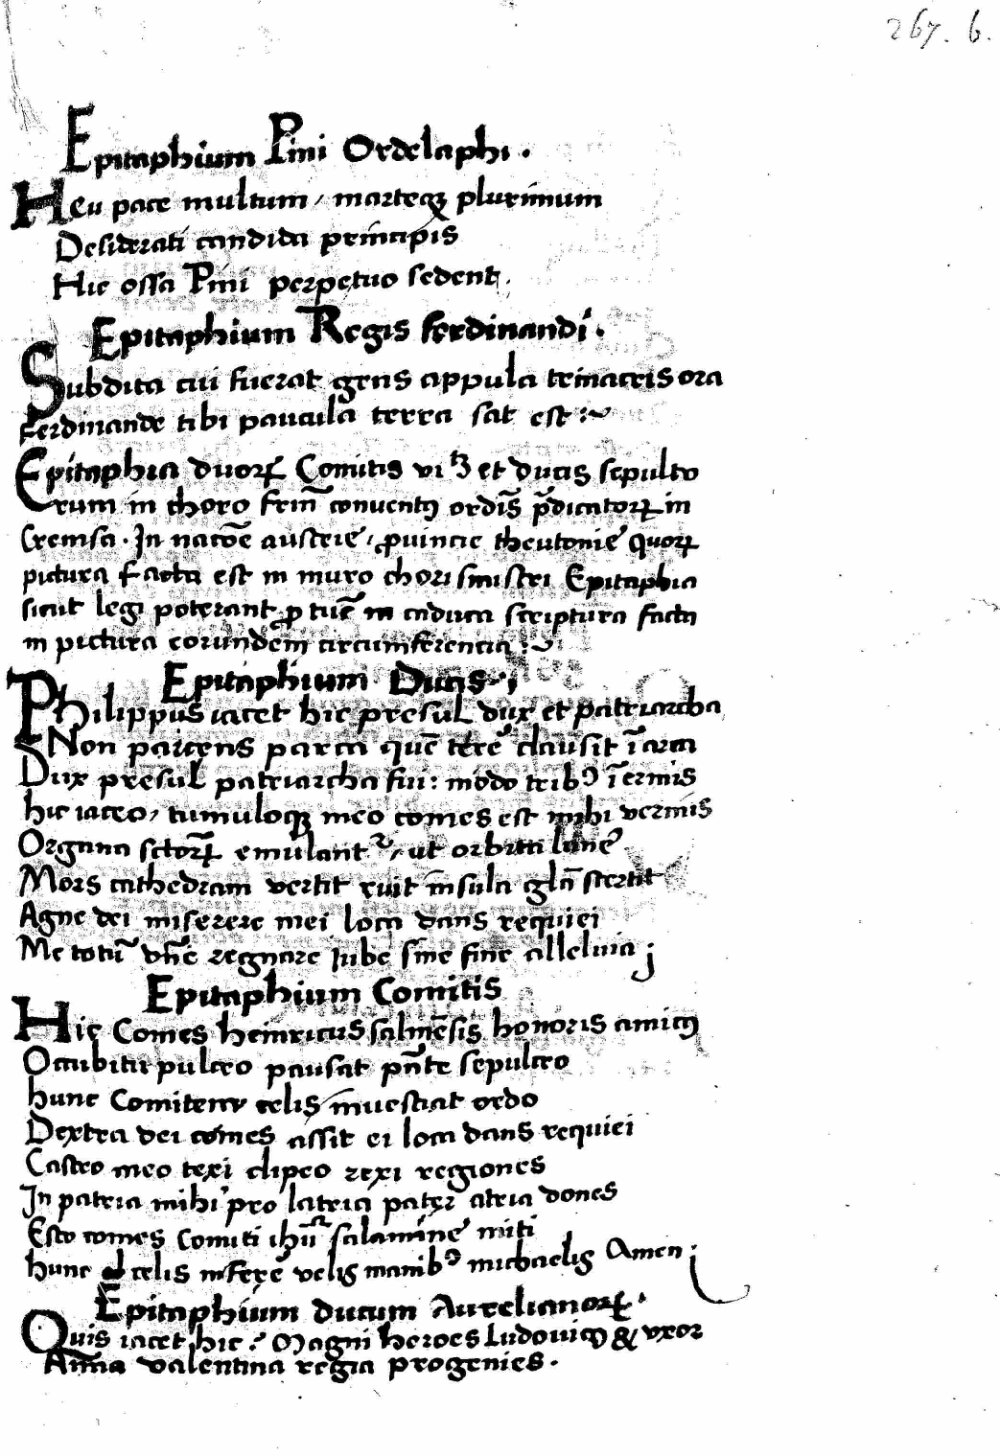 267. 6.
Epitaphium Pini Ordelaphi.
Heu pace multum / marteqꝫ plurimum
Desiderati candida principis
Hic ossa Pini perpetuo sedent.
Epitaphium Regis ferdinandi.
Subdita cui fuerat gens appula trinacris ora
Ferdinande tibi paucula terra sat est :~
Epitaphia duoꝝ Comitis vi et ducis sepulto
rum in choro frm̄ conventꝰ ordīs p̄dicatoꝝ in
Cremsa. In nacōe austrie, ꝓuincie theutonie quoꝝ
pictura facta est in muro chori sinistri Epitaphia
sicut legi poterant ꝓ tūc in caduca scriptura facta
in pictura eorundēm circumferencia :~
Epitaphium Ducis
Philippus iacet hic presul dux et patriarcha
Non parcens parca quē terre clausit ī arca
Dux presul patriarcha fui: modo tribꝰ īermis
hic iaceo, tumuloqꝫ meo comes est mihi vermis
Organa sctoꝝ emulant᷑, ut orbita lune
Mors cathedram vertit ruit insula glā stertit
Agne dei miserere mei loca dans requiei
Me totū vn̄e regnare iube sine fine alleluia j
Epitaphium Comitis
Hic Comes heinricus salmēsis honoris amicꝰ
Occubitu pulcro pausat pn̄te sepulcro
hunc Comitem celis inuestiat ordo
Dextra dei comes assit ei loca dans requiei
Castro meo texi clipeo rexi regiones
In patria mihi pro latria pater atria dones
Esto comes Comiti ihū salamine miti
hunc celis inferre velis manibꝰ michaelis Amen j
Epitaphium ducum Aurelianoꝝ.
Quis iacet hic? Magni heroes Ludouicꝰ & vxor
Anna valentina regia progenies.